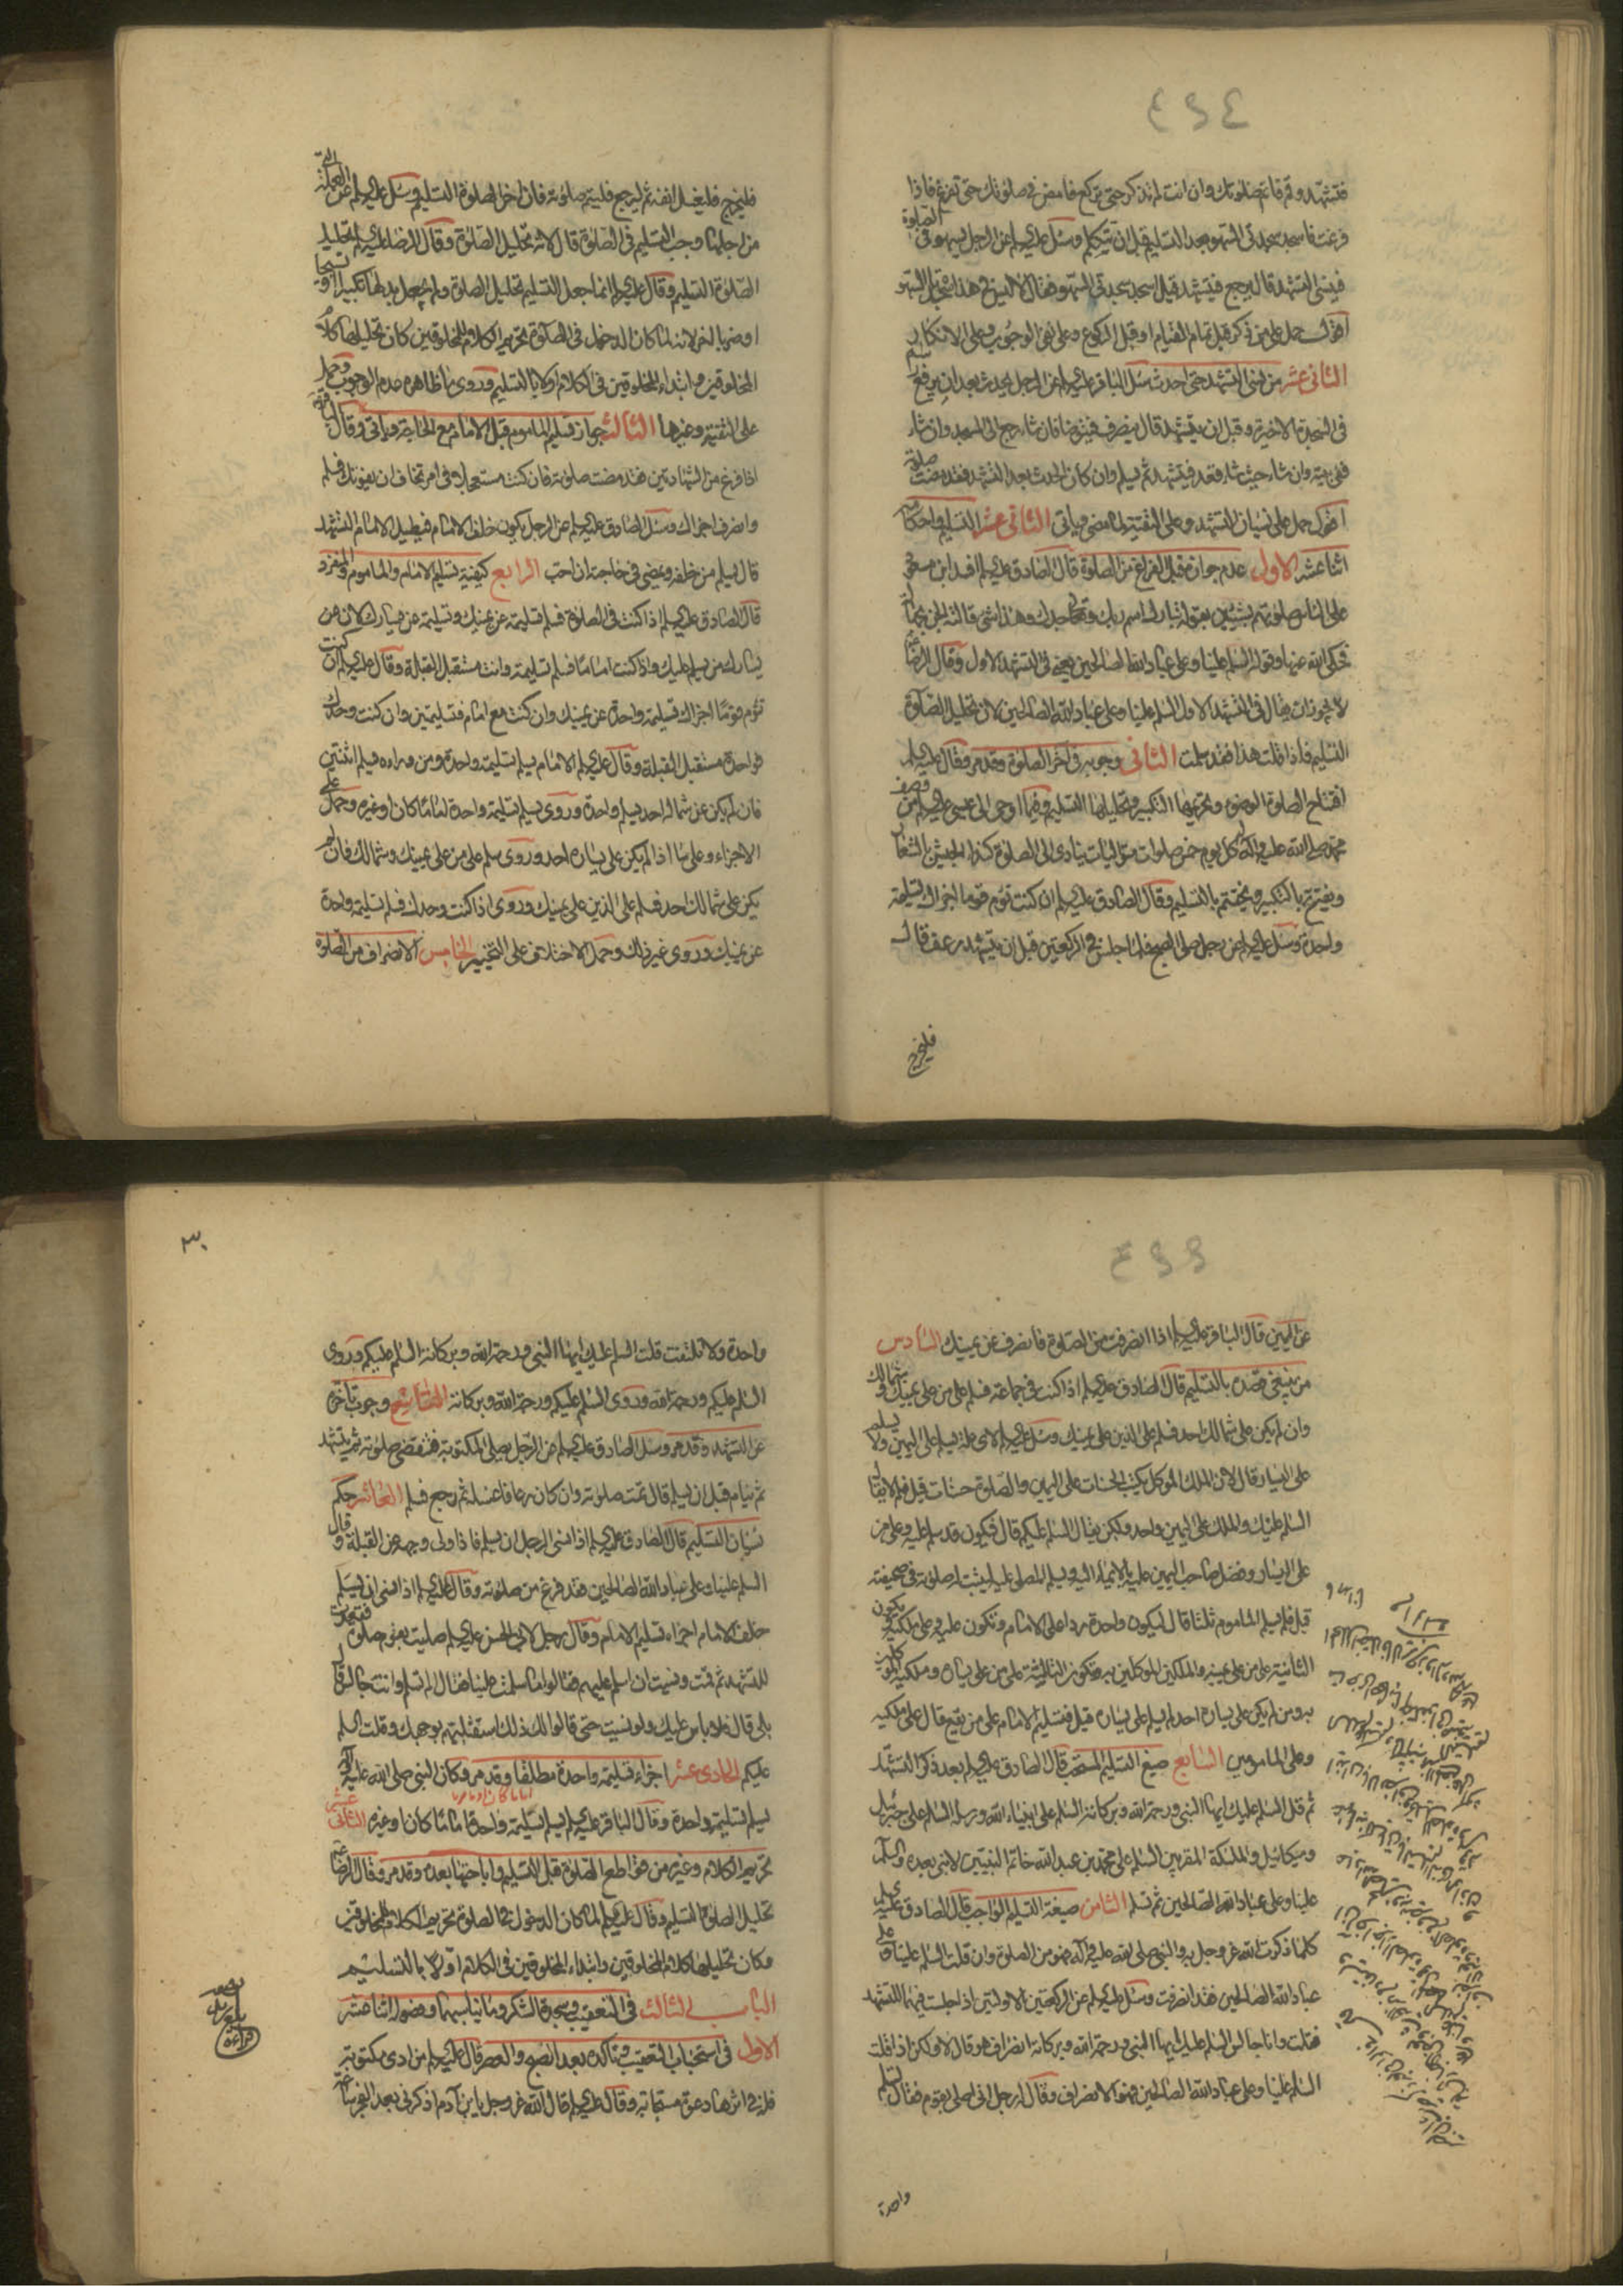 فتشهد وقم فاتم صلوتك وان انت لم تذكر حتى تركع فامض في صلوتك حتى تفرغ فاذا
فرغت فاسجد سجدتي السهو بعد التسليم قبل ان تتكلم وسئل عليه السلم عن الرجل يسهو في الصلوة
فينسى التشهد قال يرجع فيتشهد قيل ايسجد سجدتي السهو فقال لا ليس في هذا سجدتا السهو
اقول حمل على من ذكر قبل تمام القيام او قبل الركوع وعلى نفي الوجوب وعلى الانكار
الثاني عشر من نسي التشهد حتى احدث سئل الباقر عليه السلم عن الرجل يحدث بعد ان يرفع راسه
في السجدة الاخيرة وقبل ان يتشهد قال ينصرف فيتوضا فان شاء رجع الى المسجد وان شاء
ففي بيته وان شاء حيث شاء قعد فيتشهد ثم يسلم وان كان الحدث بعد التشهد فقد مضت صلوته
اقول حمل على نسيان التشهد وعلى التقية لما مضى وياتي الثاني عشر التسليم واحكامه
اثنا عشر الاول عدم جوازه قبل الفراغ من الصلوة قال الصادق عليه السلم افسد ابن مسعود
على الناس صلوتهم بشيئين بقوله تبارك اسم ربك وتعالى جدك وهذا شئ قالته الجن بجهالة
فحكى الله عنها وقوله السلم علينا وعلى عباد الله الصالحين يعني في التشهد الاول وقال الرضا ع
لا يجوز ان يقال في التشهد الاول السلم علينا وعلى عباد الله الصالحين لان تحليل الصلوة
التسليم فاذا قلت هذا فقد سلمت الثاني وجوبه في آخر الصلوة وقد مر وقال عليه السلم
افتتاح الصلوة الوضوء وتحريمها التكبير وتحليلها التسليم وفيما اوحى الى عيسى عليه السلم من وصف
محمد صلى الله عليه وآله كل يوم خمس صلوات متواليات ينادى الى الصلوة كنداء الجيش بالشعار
ويفتتح بالتكبير ويختتم بالتسليم وقال الصادق عليه السلم ان كنت تؤم قوما اجزاك تسليمة
واحدة وسئل عليه السلم عن رجل صلى الصبح فلما جلس في الركعتين قبل ان يتشهد رعف قال
فليخرج
فليخرج فليغسل انفه ثم ليرجع فليتم صلوته فان آخر الصلوة التسليم وسئل عليه السلم عن العلة التي
من اجلها وجب التسليم في الصلوة قال لانه تحليل الصلوة وقال الرضا عليه السلم تحليل
الصلوة التسليم وقال عليه السلم انما جعل التسليم تحليل الصلوة ولم يجعل بدلها تكبيرا او تسبيحا
او ضربا اخر لانه لما كان الدخول في الصلوة تحريم الكلام للمخلوقين كان تحليلها كلام
المخلوقين وابتداء المخلوقين في الكلام اولا بالتسليم وروي ما ظاهره عدم الوجوب وحمل
على التقية وغيرها الثالث جواز تسليم الماموم قبل الامام مع الحاجة وياتي وقال الباقر ع
اذا فرغ من الشهادتين فقد مضت صلوته فان كنت مستعجلا في امر تخاف ان يفوتك فسلم
وانصرف اجزاك وسئل الصادق عليه السلم عن الرجل يكون خلف الامام فيطيل الامام التشهد
قال يسلم من خلفه ويمضي في حاجته ان احب الرابع كيفية تسليم الامام والماموم والمنفرد
قال الصادق عليه السلم اذا كنت في الصلوة فسلم تسليمة عن يمينك وتسليمة عن يسارك لان عن
يسارك من يسلم عليك واذا كنت اماما فسلم تسليمة وانت مستقبل القبلة وقال عليه السلم ان كنت
تؤم قوما اجزاك تسليمة واحدة عن يمينك وان كنت مع امام فتسليمتين وان كنت وحدك
فواحدة مستقبل القبلة وقال عليه السلم الامام يسلم تسليمة واحدة ومن وراءه يسلم اثنتين
فان لم يكن عن شماله احد يسلم واحدة وروي يسلم تسليمة واحدة اماما كان او غيره وحمل على
الاجزاء وعلى ما اذا لم يكن على يساره احد وروي سلم على من على يمينك وشمالك فان لم
يكن على شمالك احد فسلم على الذين على يمينك وروي اذا كنت وحدك فسلم تسليمة واحدة
عن يمينك وروي غير ذلك وحمل الاختلاف على التخيير الخامس الانصراف من الصلوة
عن اليمين قال الباقر عليه السلم اذا انصرفت من الصلوة فانصرف عن يمينك السادس
من ينبغي قصده بالتسليم قال الصادق عليه السلم اذا كنت في جماعة فسلم على من على يمينك وشمالك
وان لم يكن على شمالك احد فسلم على الذين على يمينك وسئل عليه السلم لاي علة يسلم على اليمين ولا يسلم
على اليسار قال لان الملك الموكل يكتب الحسنات على اليمين والصلوة حسنات قيل فلم لا يقال
السلم عليك والملك على اليمين واحد ولكن يقال السلم عليكم قال فيكون قد سلم عليه وعلى من
على اليسار وفضل صاحب اليمين عليه بالايماء اليه ويسلم المصلي عليه ليثبت له صلوته في صحيفته
قيل فلم يسلم الماموم ثلثا قال ليكون واحدة ردا على الامام وتكون عليه وعلى ملكيه وتكون
الثانية على من على يمينه والملكين الموكلين به وتكون الثالثة على من على يساره وملكيه الموكلين
به ومن لم يكن على يساره احد لم يسلم على يساره قيل فتسليم الامام على من يقع قال على ملكيه
وعلى المامومين السابع صيغ التسليم المستحب قال الصادق عليه السلم بعد ذكر التشهد
ثم قل السلم عليك ايها النبي ورحمة الله وبركاته السلم على انبياء الله ورسله السلم على جبرئيل
وميكائيل والملئكة المقربين السلم على محمد بن عبد الله خاتم النبيين لا نبي بعده والسلم
علينا وعلى عباد الله الصالحين ثم تسلم الثامن صيغة التسليم الواجب قال الصادق عليه السلم
كلما ذكرت الله عز وجل به والنبي صلى الله عليه وآله فهو من الصلوة وان قلت السلم علينا وعلى
عباد الله الصالحين فقد انصرفت وسئل عليه السلم عن الركعتين الاولتين اذا جلست فيهما للتشهد
فقلت وانا جالس السلم عليك ايها النبي ورحمة الله وبركاته انصراف هو قال لا ولكن اذا قلت
السلم علينا وعلى عباد الله الصالحين فهو الانصراف وقال له رجل اني اصلي بقوم فقال تسلم
واحدة
٣٠
واحدة ولا تلتفت قلت السلم عليك ايها النبي ورحمة الله وبركاته السلم عليكم وروي
السلم عليكم ورحمة الله وروي السلم عليكم ورحمة الله وبركاته التاسع وجوب تاخره
عن التشهد وقد مر وسئل الصادق عليه السلم عن الرجل يصلي المكتوبة فتقضى صلوته ثم يتشهد
ثم ينام قبل ان يسلم قال تمت صلوته وان كان رعافا غسله ثم رجع فسلم العاشر حكم
نسيان التسليم قال الصادق عليه السلم اذا نسي الرجل ان يسلم فاذا ولى وجهه عن القبلة وقال
السلم علينا وعلى عباد الله الصالحين فقد فرغ من صلوته وقال عليه السلم اذا نسي ان يسلم
خلف الامام اجزاه تسليم الامام وقال رجل لابي الحسن عليه السلم صليت بقوم صلوة فقعدت
للتشهد ثم قمت ونسيت ان اسلم عليهم فقالوا ما سلمت علينا فقال الم تسلم وانت جالس قال
بلى قال فلا باس عليك ولو نسيت حتى قالوا لك ذلك استقبلتهم بوجهك وقلت السلم
عليكم الحادي عشر اجزاء تسليمة واحدة مطلقا وقد مر وكان النبي صلى الله عليه وآله
يسلم تسليمة واحدة وقال الباقر عليه السلم يسلم تسليمة واحدة اماما كان او غيره الثاني عشر
تحريم الكلام وغيره من قواطع الصلوة قبل التسليم واباحتها بعده وقد مر وقال الرضا ع
تحليل الصلوة التسليم وقال عليه السلم لما كان الدخول في الصلوة تحريم الكلام للمخلوقين
وكان تحليلها كلام المخلوقين وابتداء المخلوقين في الكلام اولا بالتسليم
الباب الثالث في التعقيب وسجدتي الشكر وما يناسبهما وفصوله اثنا عشر
الاول في استحباب التعقيب وتاكده بعد الصبح والعصر قال عليه السلم من ادى مكتوبة
فله في اثرها دعوة مستجابة وقال عليه السلم قال الله عز وجل يا ابن آدم اذكرني بعد الفجر ساعة